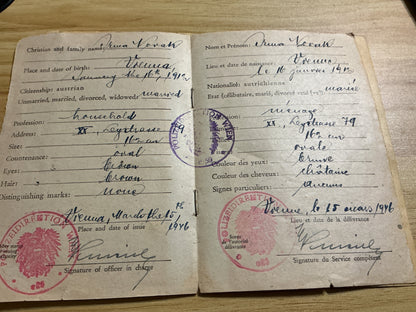 Christian and family name: Irma Novak
Place and date of birth: Vienna,
January the 16th, 1912
Citizenship: austrian
Unmarried, married, divorced, widowed: married
Profession: household
Address: XX., 79
Size: cm
Countenance: oval
Eyes: brown
Hair: brown
Distinguishing marks: none
Vienna, March the 15th
1946
Place and date of issue
Signature of officer in charge
POLIZEIDIREKTION WIEN
Nom et Prénom: Irma Novak
Lieu et date de naissance: Vienne,
le 16 janvier 1912
Nationalité: autrichienne
Etat (célibataire, marié, divorcé veuf): mariée
ménage
XX., 79
cm
ovale
Couleur des yeux: brune
Couleur des cheveux: châtaine
Signes particuliers: aucuns
Vienne, le 15 mars 1946
Lieu et date de la délivrance
Signature du Service compétent
POLIZEIDIREKTION WIEN